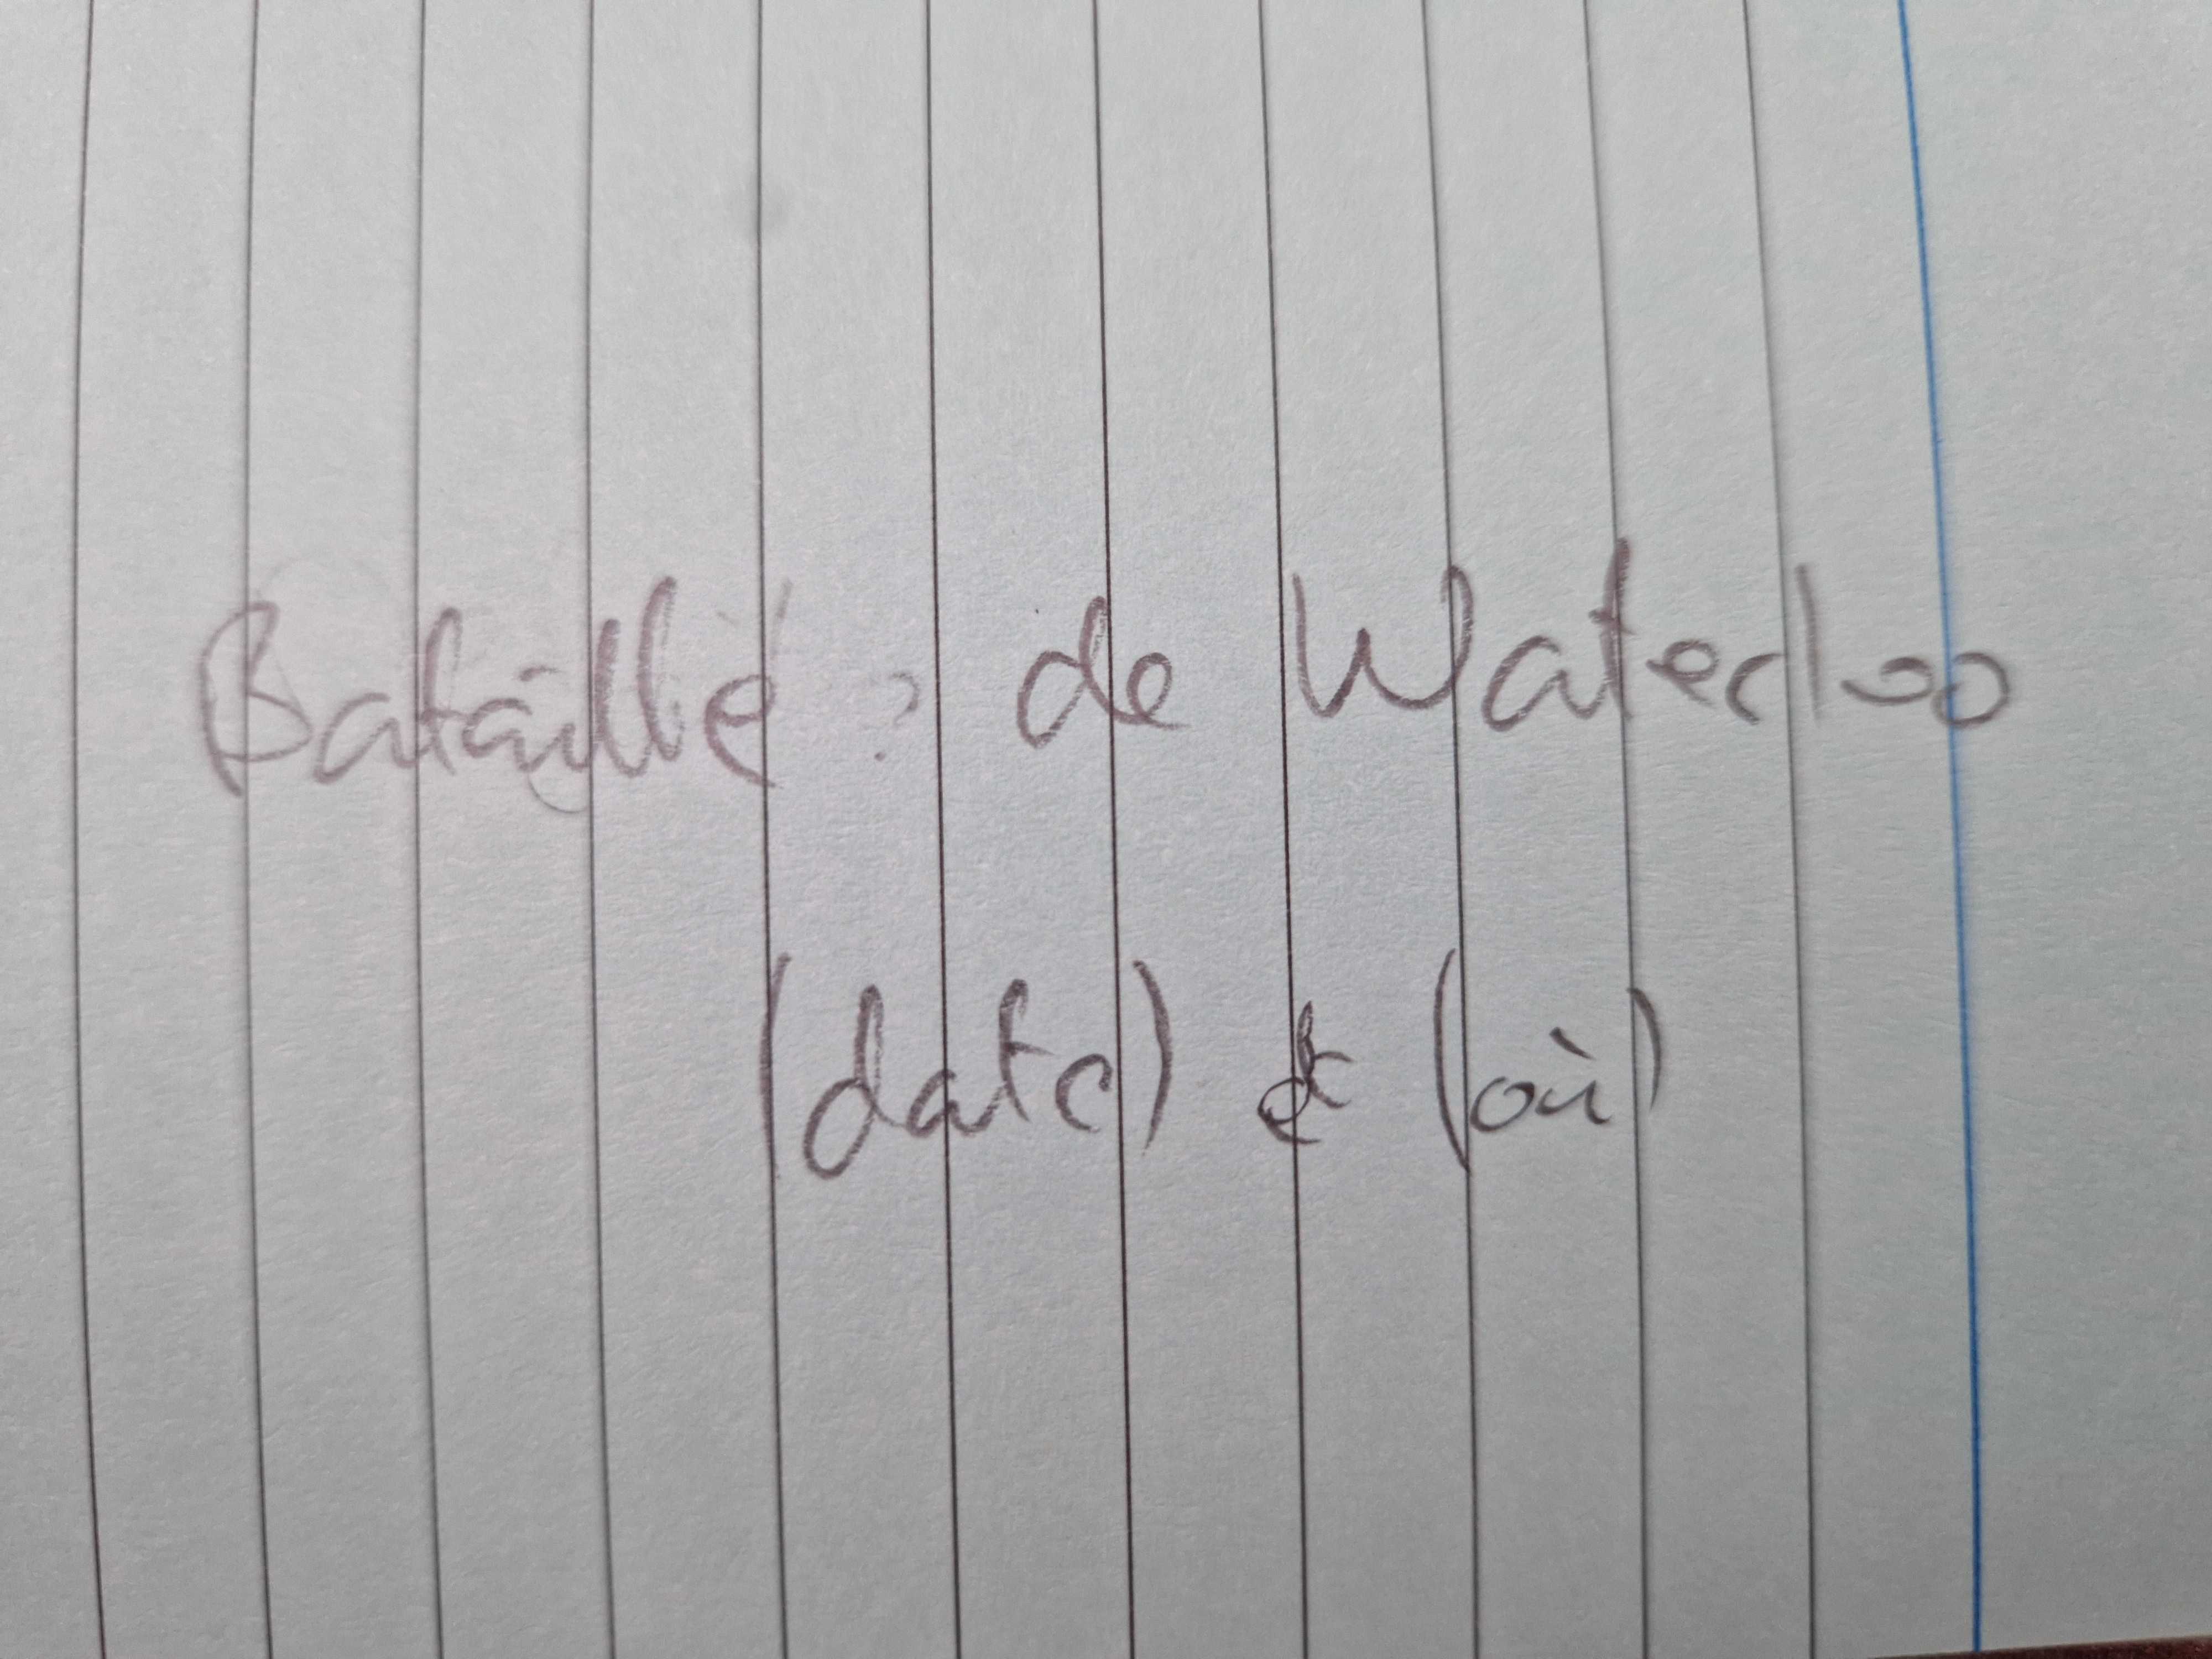 Bataille : de Waterloo
(date) et (où)